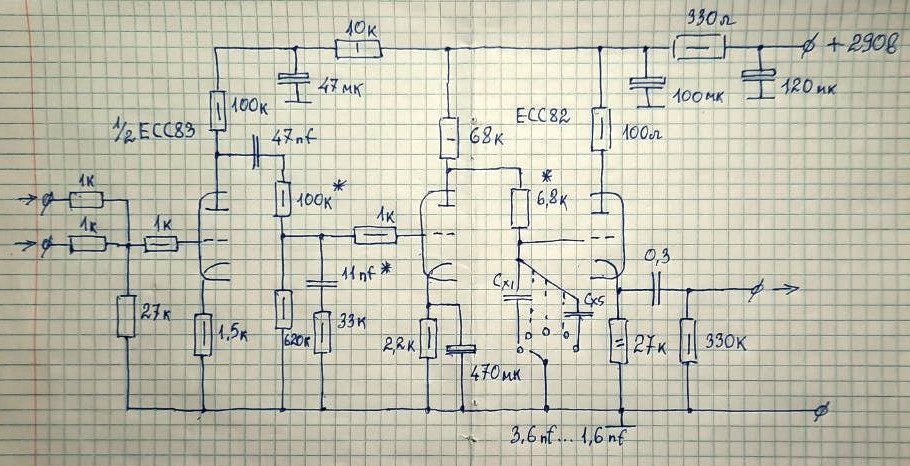 330л
10к
+290В
120мк
100мк
47мк
100к
ECC82
68к
100л
½ECC83
47nf
1к
100к*
*
6,8к
1к
1к
1к
11nf*
0,3
Cx1
Cx5
27к
1,5к
620к
33к
2,2к
27к
330К
470мк
3,6nf...1,6nf